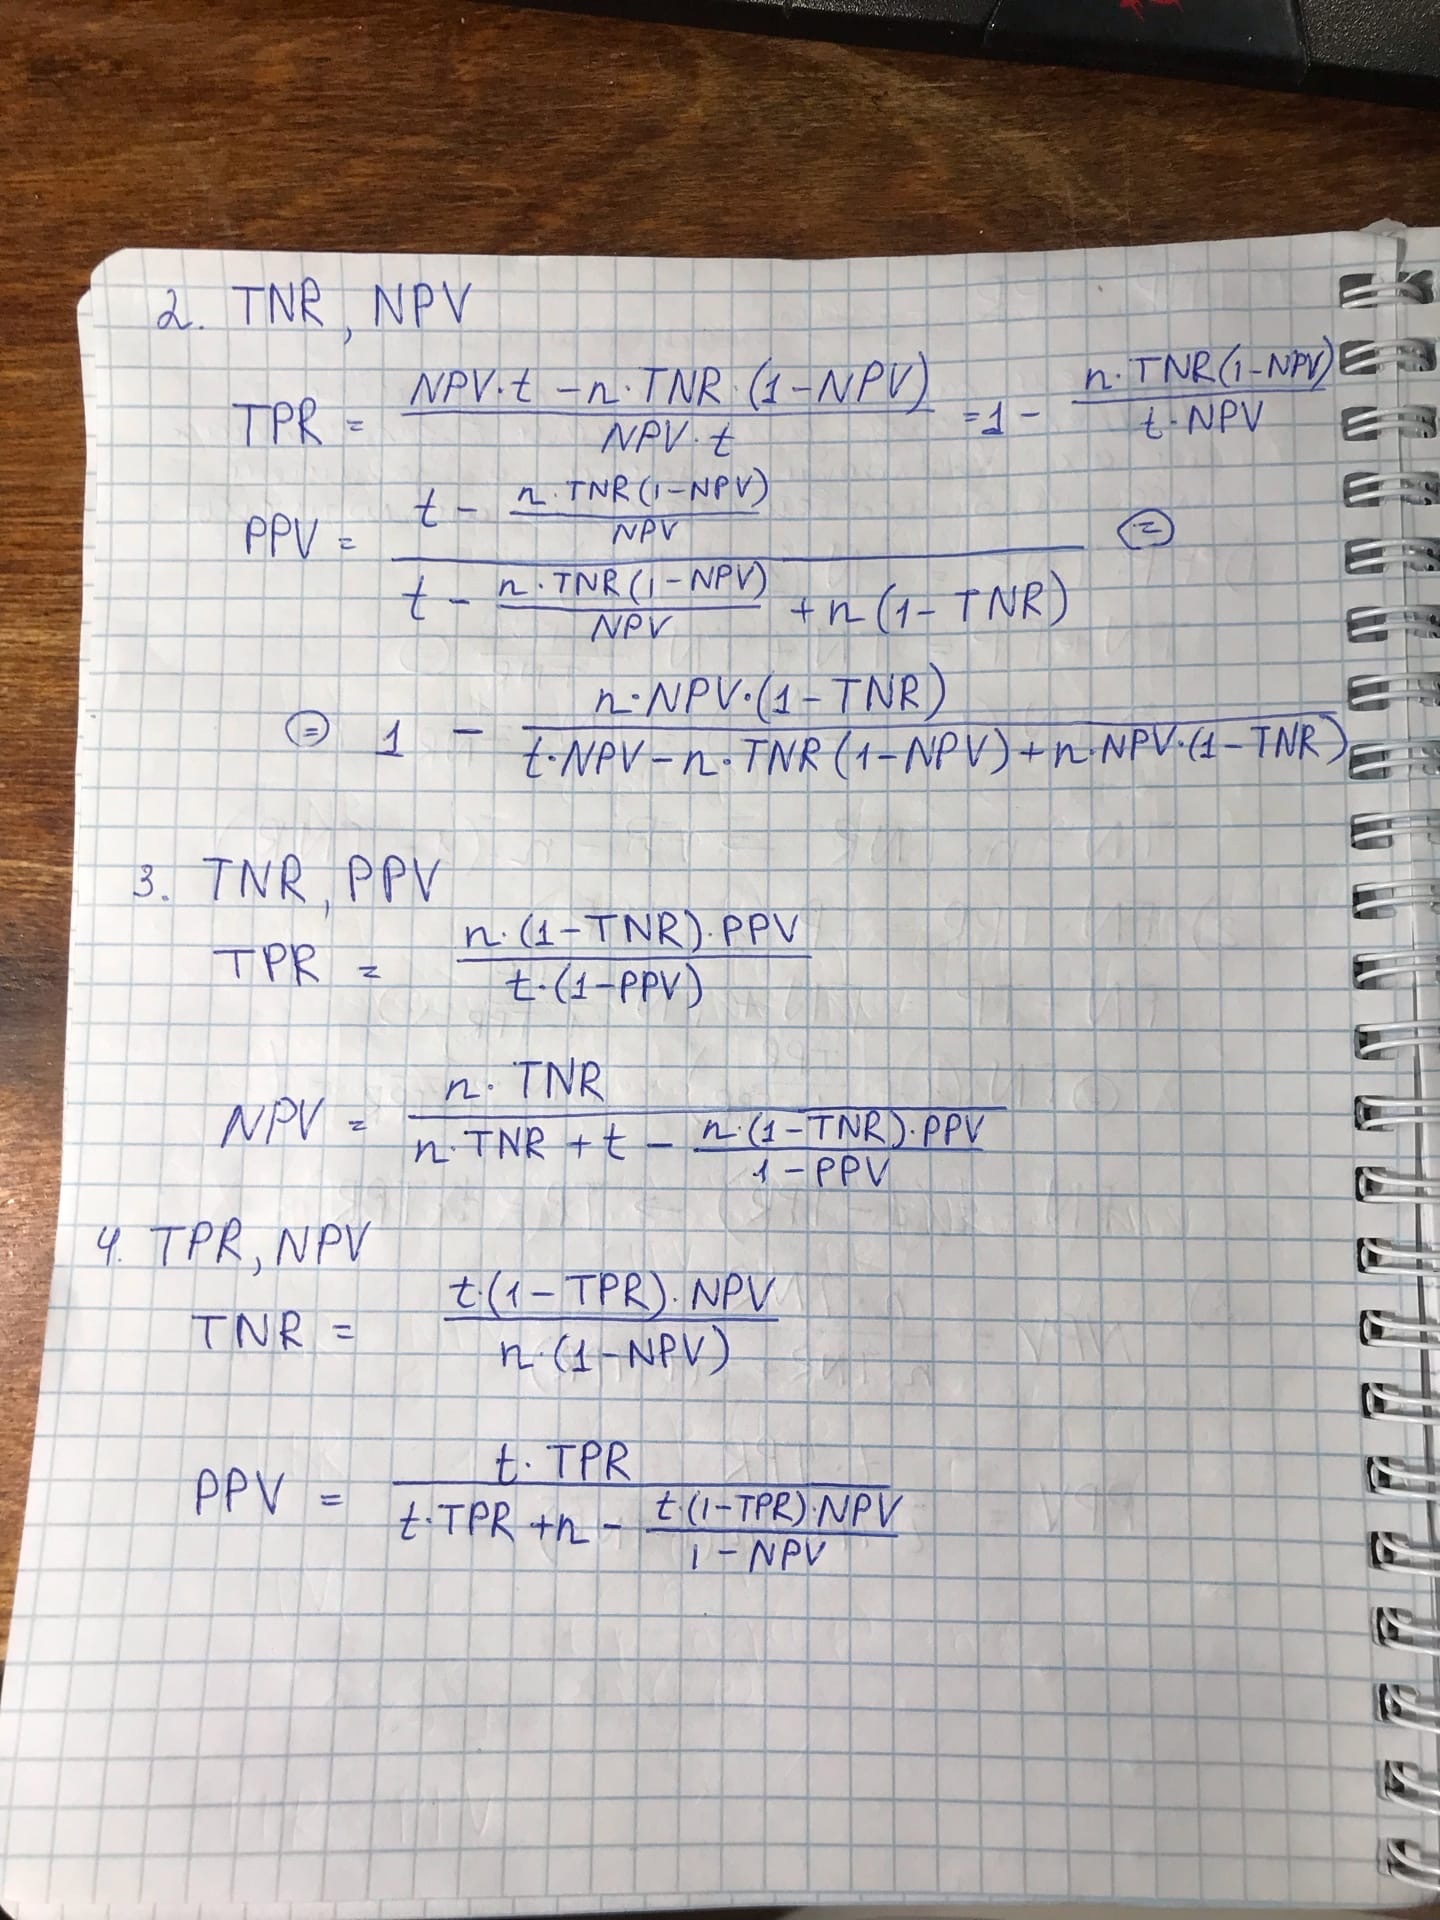 2. TNR, NPV
TPR = \frac{NPV·t - n·TNR·(1-NPV)}{NPV·t} = 1 - \frac{n·TNR(1-NPV)}{t·NPV}
PPV = \frac{t - \frac{n·TNR(1-NPV)}{NPV}}{t - \frac{n·TNR(1-NPV)}{NPV} + n(1-TNR)} ⊜
⊜ 1 - \frac{n·NPV·(1-TNR)}{t·NPV-n·TNR(1-NPV)+n·NPV·(1-TNR)}
3. TNR, PPV
TPR = \frac{n·(1-TNR)·PPV}{t·(1-PPV)}
NPV = \frac{n·TNR}{n·TNR + t - \frac{n·(1-TNR)·PPV}{1-PPV}}
4. TPR, NPV
TNR = \frac{t·(1-TPR)·NPV}{n·(1-NPV)}
PPV = \frac{t·TPR}{t·TPR + n - \frac{t·(1-TPR)·NPV}{1-NPV}}